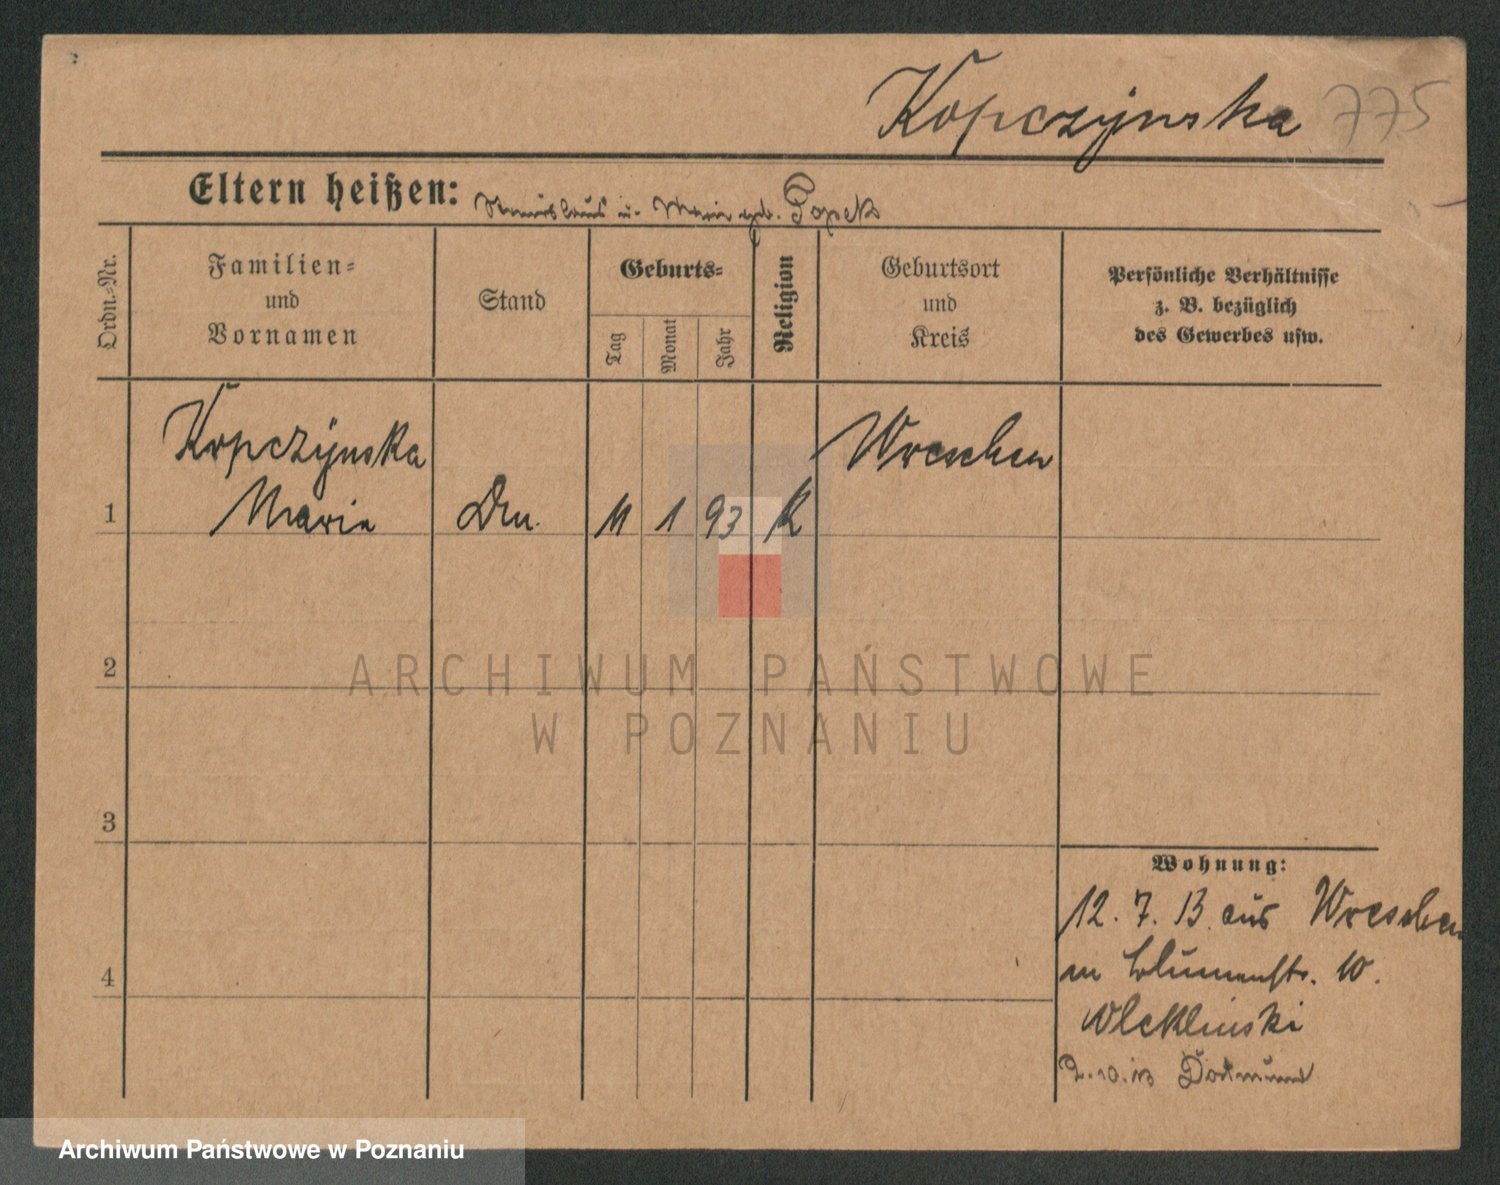 Kopczynska 775
Eltern heißen: u. Maria geb. Popek
Ordn.-Nr.
Familien-
und
Vornamen
Stand
Geburts-
Tag
Monat
Jahr
Religion
Geburtsort
und
Kreis
Persönliche Verhältnisse
z. B. bezüglich
des Gewerbes usw.
Kopczynska Wreschen
1 Maria 11 1 93 K
2
ARCHIWUM PAŃSTWOWE
W POZNANIU
3
Wohnung:
12. 7. 13 aus Wreschen
4
in Blumenstr. 10.
Wleklinski
2.10.13 Dortmund
Archiwum Państwowe w Poznaniu